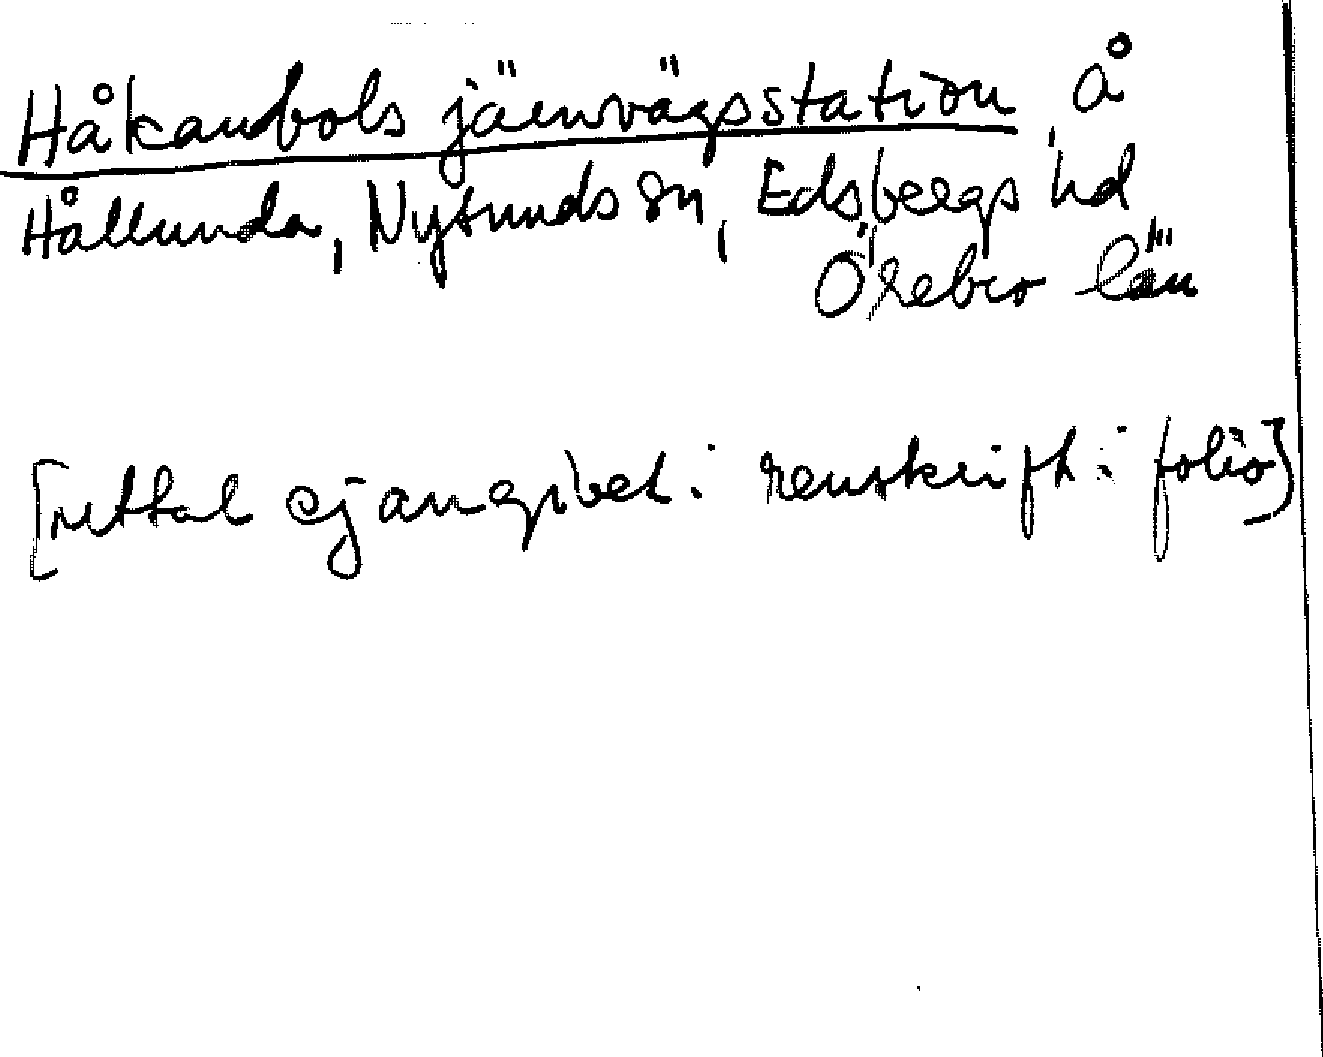 Håkanbols järnvägsstation, å
Hållunda, Nysunds sn, Edsbergs hd
Örebro län
[uttal ej angivet i renskrift i folio]